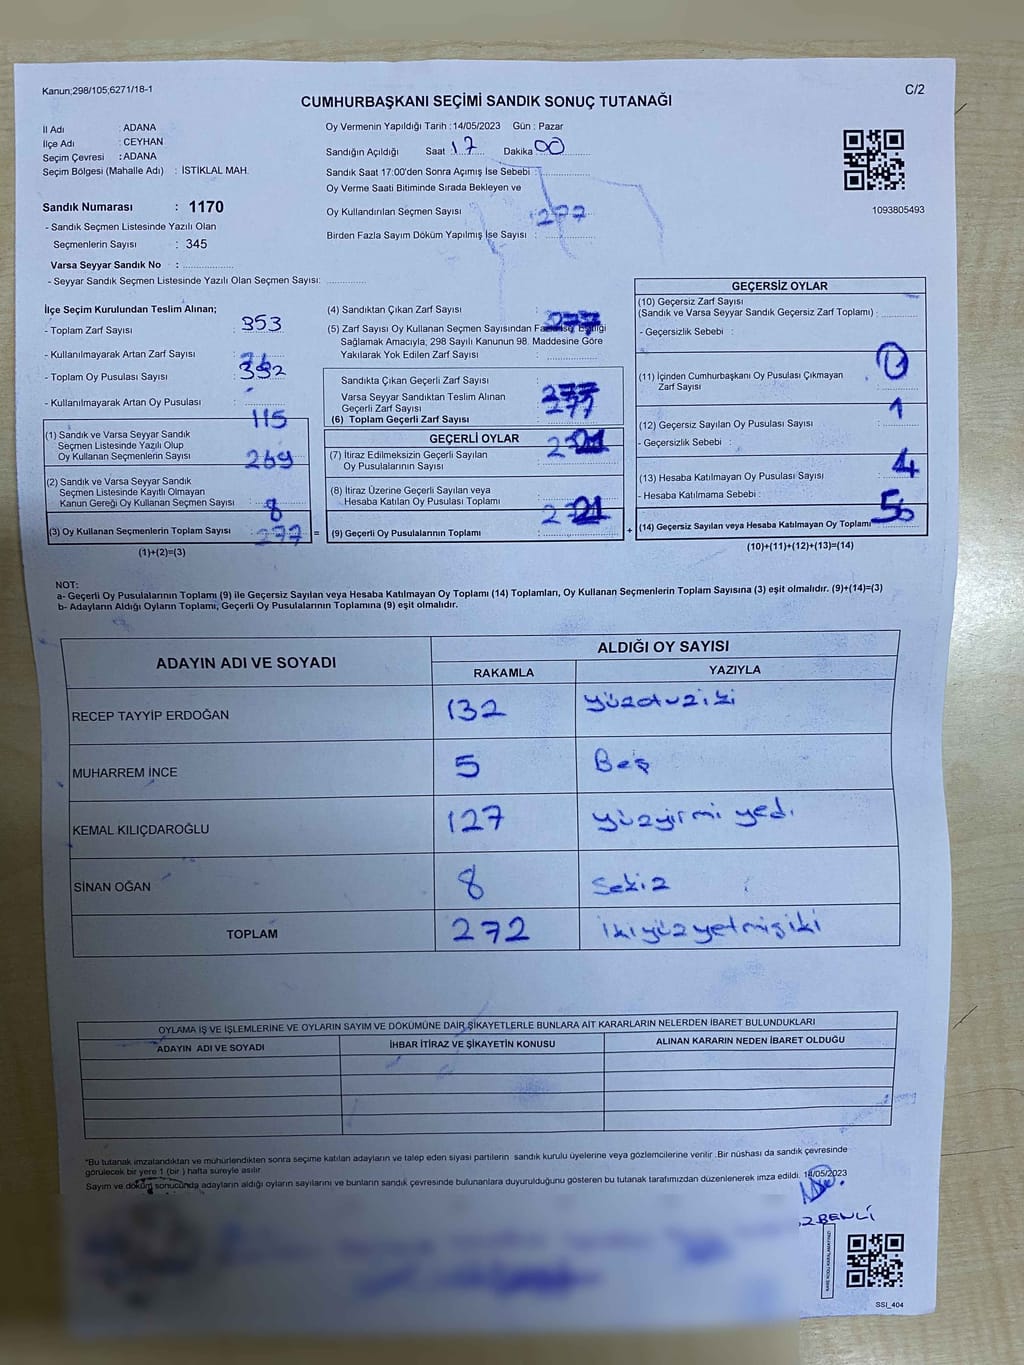 Kanun;298/105;6271/18-1
C/2
CUMHURBAŞKANI SEÇİMİ SANDIK SONUÇ TUTANAĞI
İl Adı : ADANA
İlçe Adı : CEYHAN
Seçim Çevresi : ADANA
Seçim Bölgesi (Mahalle Adı) : İSTİKLAL MAH.
Oy Vermenin Yapıldığı Tarih : 14/05/2023 Gün : Pazar
Sandığın Açıldığı Saat 17 Dakika 00
Sandık Saat 17:00'den Sonra Açımış İse Sebebi :
Oy Verme Saati Bitiminde Sırada Bekleyen ve
Oy Kullandırılan Seçmen Sayısı : 277
Birden Fazla Sayım Döküm Yapılmış İse Sayısı :
1093805493
Sandık Numarası : 1170
- Sandık Seçmen Listesinde Yazılı Olan
Seçmenlerin Sayısı : 345
Varsa Seyyar Sandık No :
- Seyyar Sandık Seçmen Listesinde Yazılı Olan Seçmen Sayısı:
İlçe Seçim Kurulundan Teslim Alınan;
- Toplam Zarf Sayısı : 353
- Kullanılmayarak Artan Zarf Sayısı :
- Toplam Oy Pusulası Sayısı :
- Kullanılmayarak Artan Oy Pusulası :
115
(1) Sandık ve Varsa Seyyar Sandık
Seçmen Listesinde Yazılı Olup
Oy Kullanan Seçmenlerin Sayısı : 269
(2) Sandık ve Varsa Seyyar Sandık
Seçmen Listesinde Kayıtlı Olmayan
Kanun Gereği Oy Kullanan Seçmen Sayısı : 8
(3) Oy Kullanan Seçmenlerin Toplam Sayısı : 277 =
(1)+(2)=(3)
(4) Sandıktan Çıkan Zarf Sayısı : 277
(5) Zarf Sayısı Oy Kullanan Seçmen Sayısından
Sağlamak Amacıyla; 298 Sayılı Kanunun 98. Maddesine Göre
Yakılarak Yok Edilen Zarf Sayısı :
Sandıkta Çıkan Geçerli Zarf Sayısı : 277
Varsa Seyyar Sandıktan Teslim Alınan
Geçerli Zarf Sayısı
(6) Toplam Geçerli Zarf Sayısı : 277
GEÇERLİ OYLAR
(7) İtiraz Edilmeksizin Geçerli Sayılan
Oy Pusulalarının Sayısı :
(8) İtiraz Üzerine Geçerli Sayılan veya
Hesaba Katılan Oy Pusulası Toplamı :
(9) Geçerli Oy Pusulalarının Toplamı : +
GEÇERSİZ OYLAR
(10) Geçersiz Zarf Sayısı
(Sandık ve Varsa Seyyar Sandık Geçersiz Zarf Toplamı) :
- Geçersizlik Sebebi :
(11) İçinden Cumhurbaşkanı Oy Pusulası Çıkmayan
Zarf Sayısı : 0
(12) Geçersiz Sayılan Oy Pusulası Sayısı : 1
- Geçersizlik Sebebi :
(13) Hesaba Katılmayan Oy Pusulası Sayısı : 4
- Hesaba Katılmama Sebebi :
(14) Geçersiz Sayılan veya Hesaba Katılmayan Oy Toplamı
(10)+(11)+(12)+(13)=(14)
NOT:
a- Geçerli Oy Pusulalarının Toplamı (9) ile Geçersiz Sayılan veya Hesaba Katılmayan Oy Toplamı (14) Toplamları, Oy Kullanan Seçmenlerin Toplam Sayısına (3) eşit olmalıdır. (9)+(14)=(3)
b- Adayların Aldığı Oyların Toplamı, Geçerli Oy Pusulalarının Toplamına (9) eşit olmalıdır.
ADAYIN ADI VE SOYADI ALDIĞI OY SAYISI
RAKAMLA YAZIYLA
RECEP TAYYİP ERDOĞAN 132 yüzotuziki
MUHARREM İNCE 5 Beş
KEMAL KILIÇDAROĞLU 127 yüzyirmi yedi
SİNAN OĞAN 8 Sekiz
TOPLAM 272 ikiyüzyetmişiki
OYLAMA İŞ VE İŞLEMLERİNE VE OYLARIN SAYIM VE DÖKÜMÜNE DAİR ŞİKAYETLERLE BUNLARA AİT KARARLARIN NELERDEN İBARET BULUNDUKLARI
ADAYIN ADI VE SOYADI İHBAR İTİRAZ VE ŞİKAYETİN KONUSU ALINAN KARARIN NEDEN İBARET OLDUĞU
"Bu tutanak imzalandıktan ve mühürlendikten sonra seçime katılan adayların ve talep eden siyasi partilerin sandık kurulu üyelerine veya gözlemcilerine verilir .Bir nüshası da sandık çevresinde
görülecek bir yere 1 (bir ) hafta süreyle asılır.
Sayım ve döküm sonucunda adayların aldığı oyların sayılarını ve bunların sandık çevresinde bulunanlara duyurulduğunu gösteren bu tutanak tarafımızdan düzenlenerek imza edildi. 14/05/2023
BENLİ
SSI_404